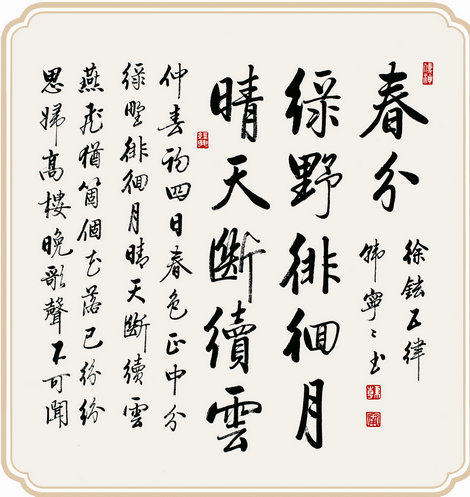 春分
徐鉉五律
韓寧〻书
綠野徘徊月
晴天斷續雲
仲春初四日春色正中分
綠野徘徊月晴天斷續雲
燕飛猶箇個花落已紛紛
思婦高樓晚歌聲不可聞